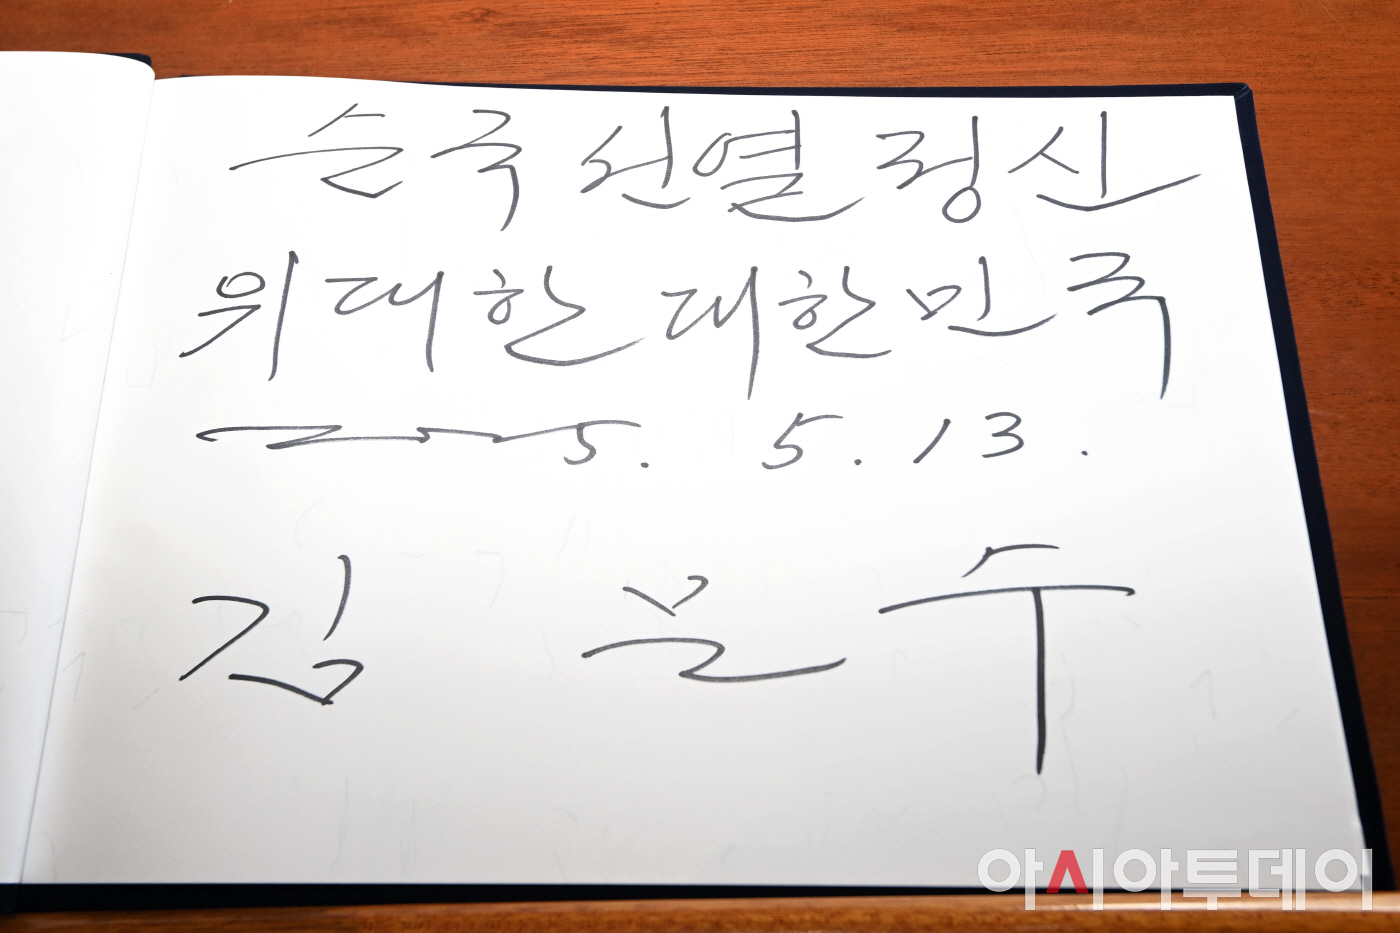 순국선열 정신
위대한 대한민국
2025. 5. 13.
김 문 수
아시아투데이